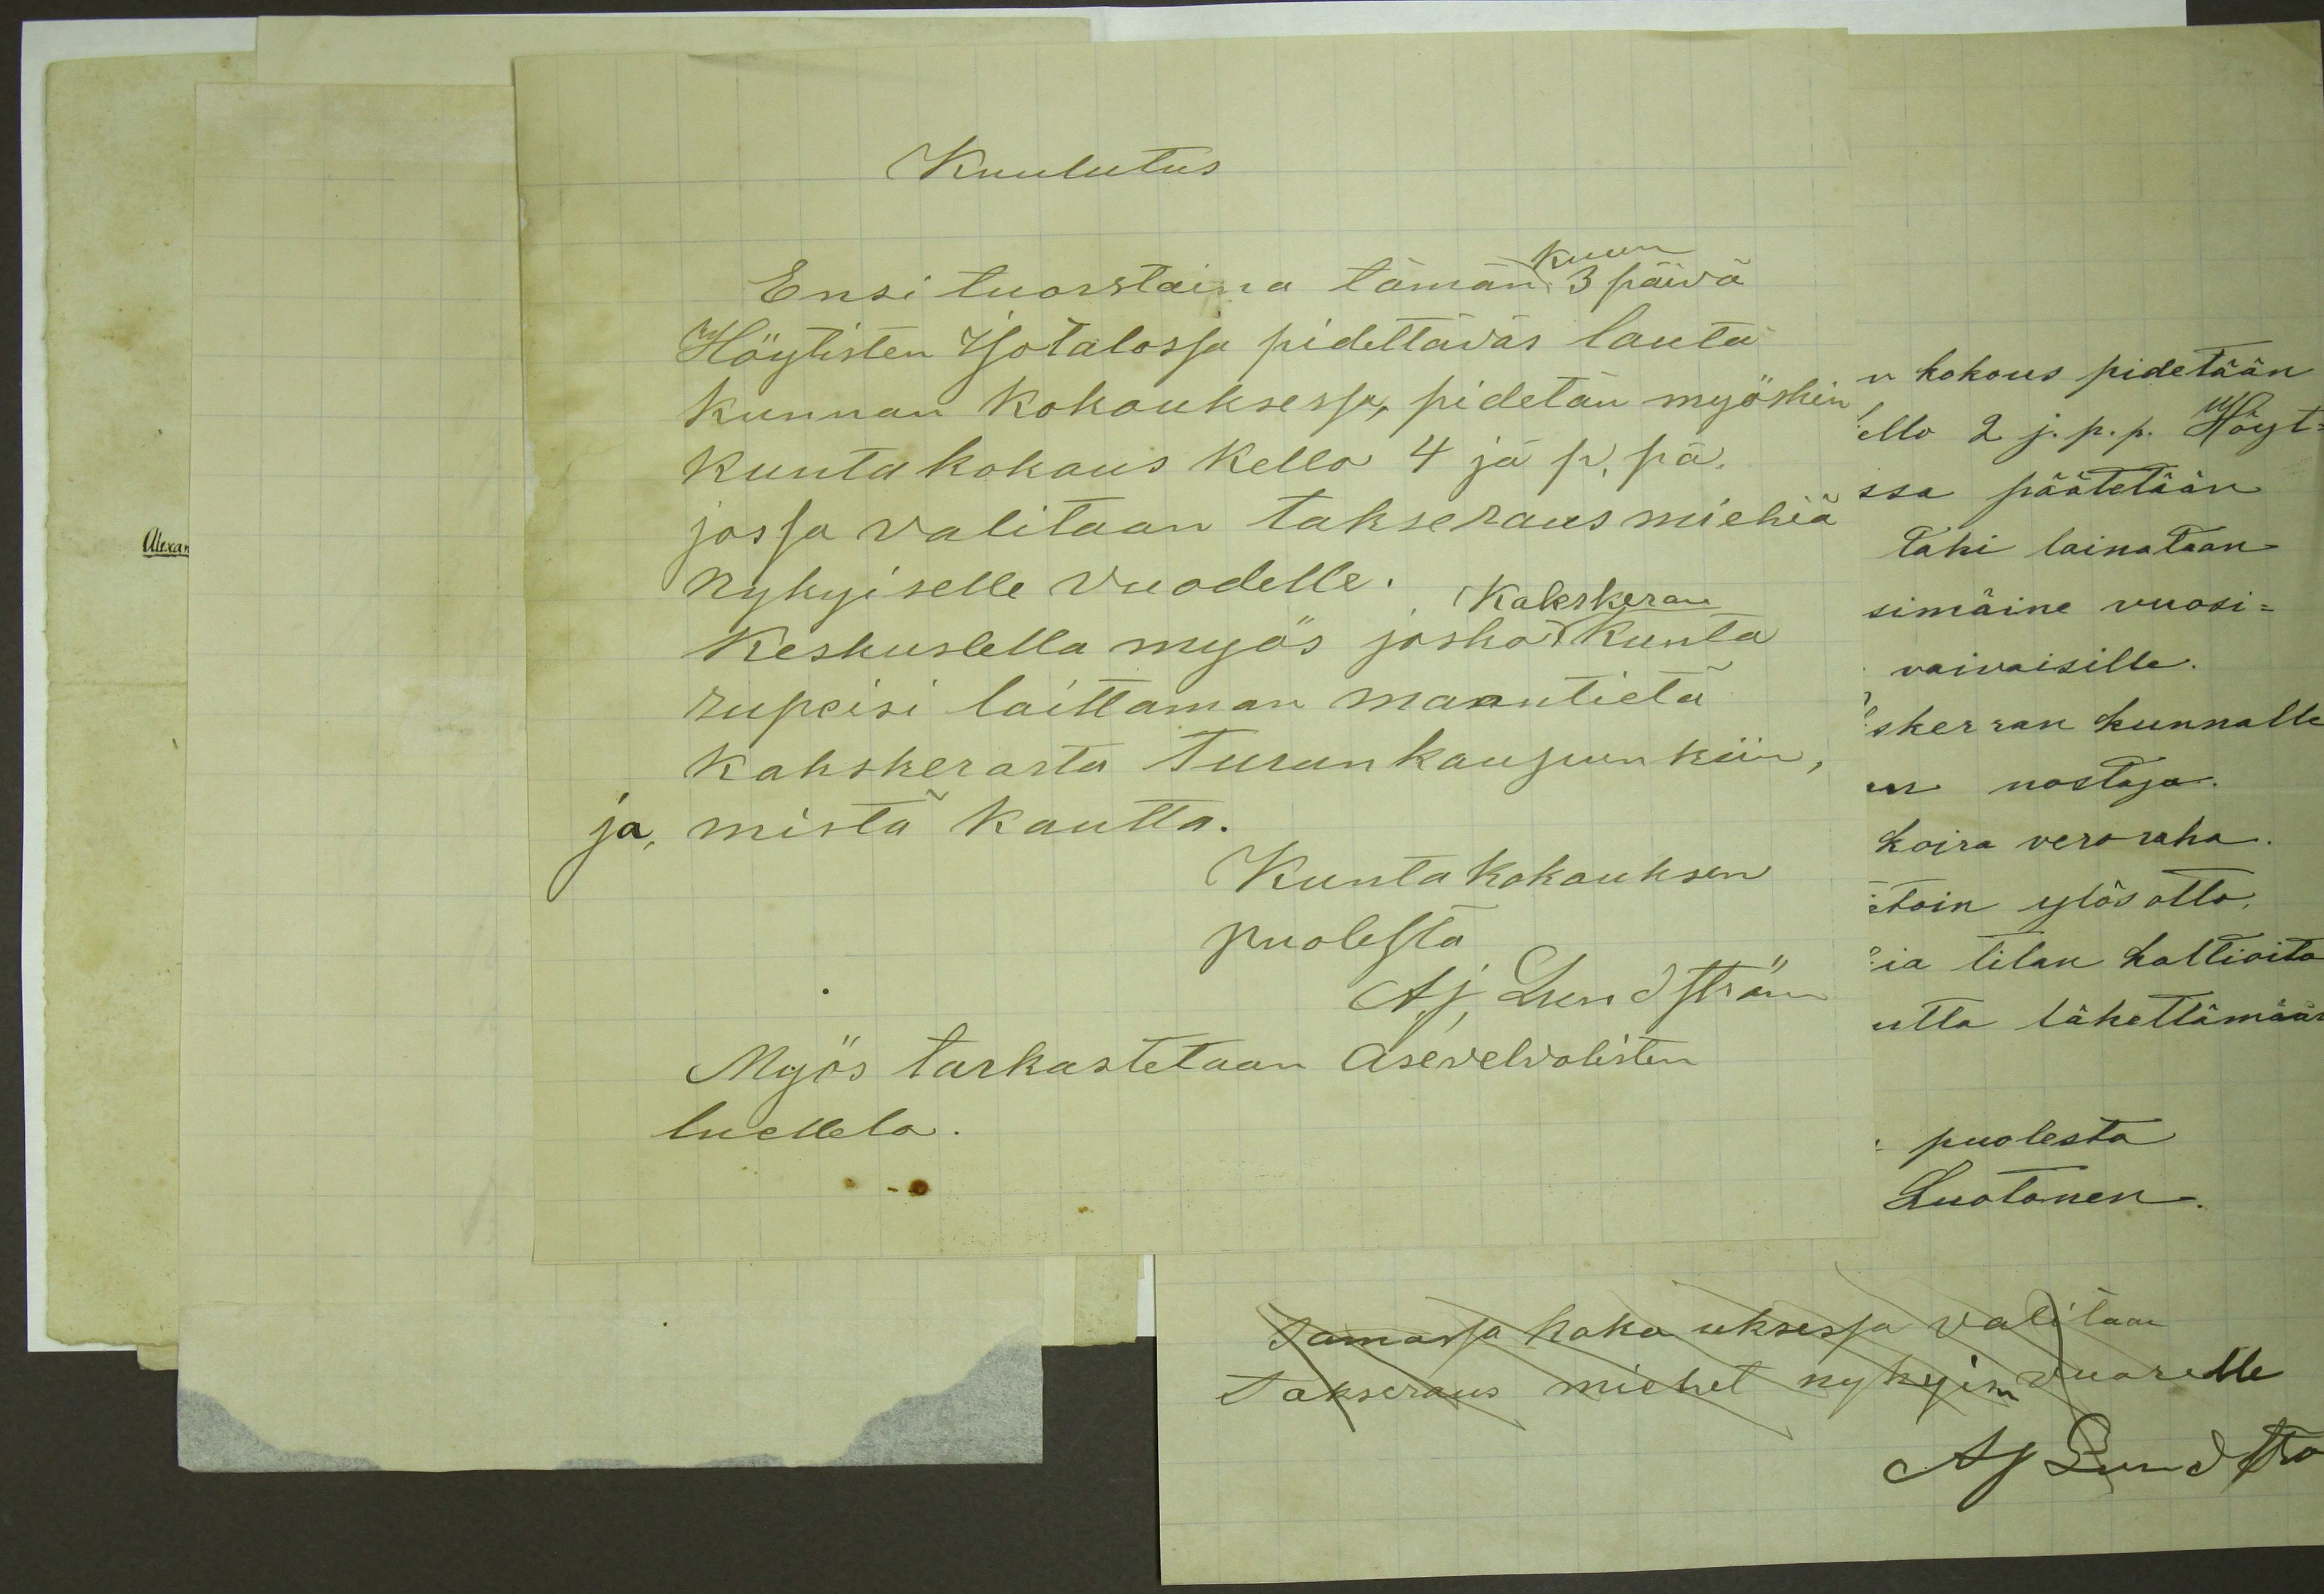 Kuulutus
Ensi tuorstaina tämän kuun 3 päivä
Höytisten Isotalossa pidettäväs lauta
kunnan kokouksessa, pidetän myöskin
kunta kokous kello 4 jä p, pä.
jossa valitaan takseraus miehiä
nykyiselle vuodelle.
Keskustella myös josko Kakskeran kunta
rupeisi laittaman maantietä
kakskerasta Turun kaupunkiin,
ja, mistä kautta.
Kunta kokouksen
puolesta
A,j, Lundström
Myös tarkastetaan asevelvolisten
luettelo.
Alexan
kokous pidetään
ello 2 j. p. p. Höyt=
ssa päätetään
Tahi lainataan
simäine vuosi=
vaivaisille.
skerran kunnalle
en nostaja.
koira veroraha.
etoin ylösotto.
ia tilan haltioita
utta lähettämään
puolesta
Luotonen.
Samassa kokouksessa valitaan
Takseraus miehet nykyisn vuorelle
AJ Lundströ